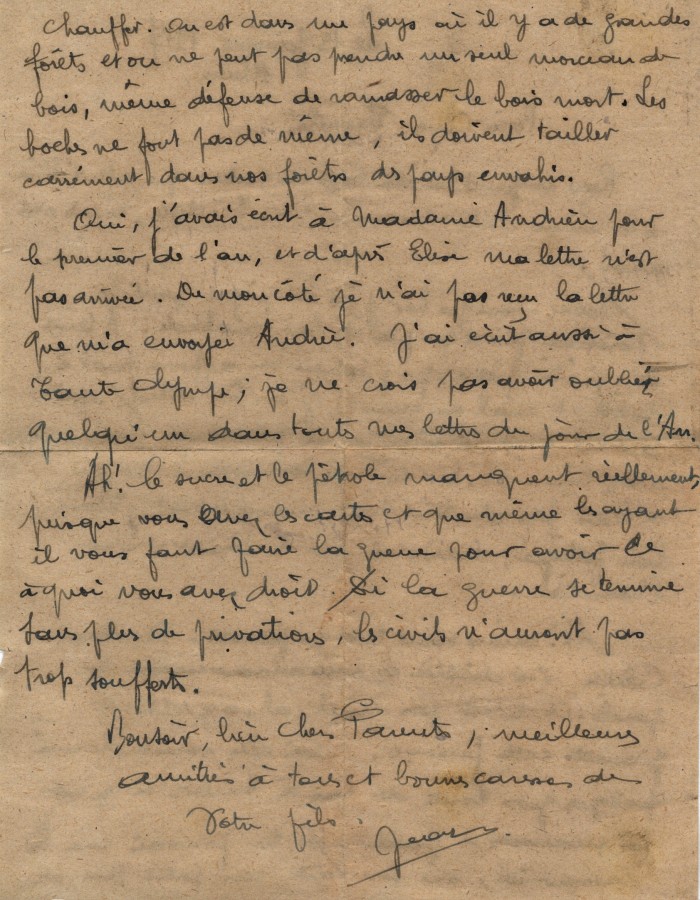 chauffer. On est dans un pays où il y a de grandes
forêts et on ne peut pas prendre un seul morceau de
bois, même défense de ramasser le bois mort. Les
boches ne font pas de même, ils doivent tailler
carrément dans nos forêts des pays envahis.
Oui, j'avais écrit à Madame Andrieu pour
le premier de l'an, et d'après Elise ma lettre n'est
pas arrivée. De mon côté je n'ai pas reçu la lettre
que m'a envoyée Andrée. J'ai écrit aussi à
Tante Olympe ; je ne crois pas avoir oublié
quelqu'un dans toutes mes lettres du jour de l'An.
Ah! le sucre et le pétrole manquent réellement,
puisque vous avez les cartes et que même les ayant
il vous faut faire la queue pour avoir ce
à quoi vous avez droit. Si la guerre se termine
sans plus de privations, les civils n'auront pas
trop soufferts.
Bonsoir, bien chers Parents, meilleures
amitiés à tous et bonnes caresses de
Votre fils.
Jean.